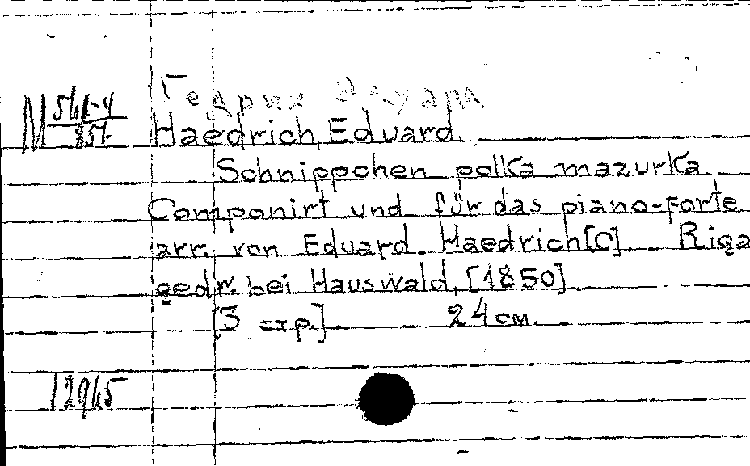 Гедрих Эдуард
М
Haedrich, Eduard.
Schnippchen polka mazurka.
Componirt und für das piano-forte
arr. von Eduard Haedrich[O] Riga
gedr. bei Hauswald, [1850]
[3 exp.] 24 см.
12965